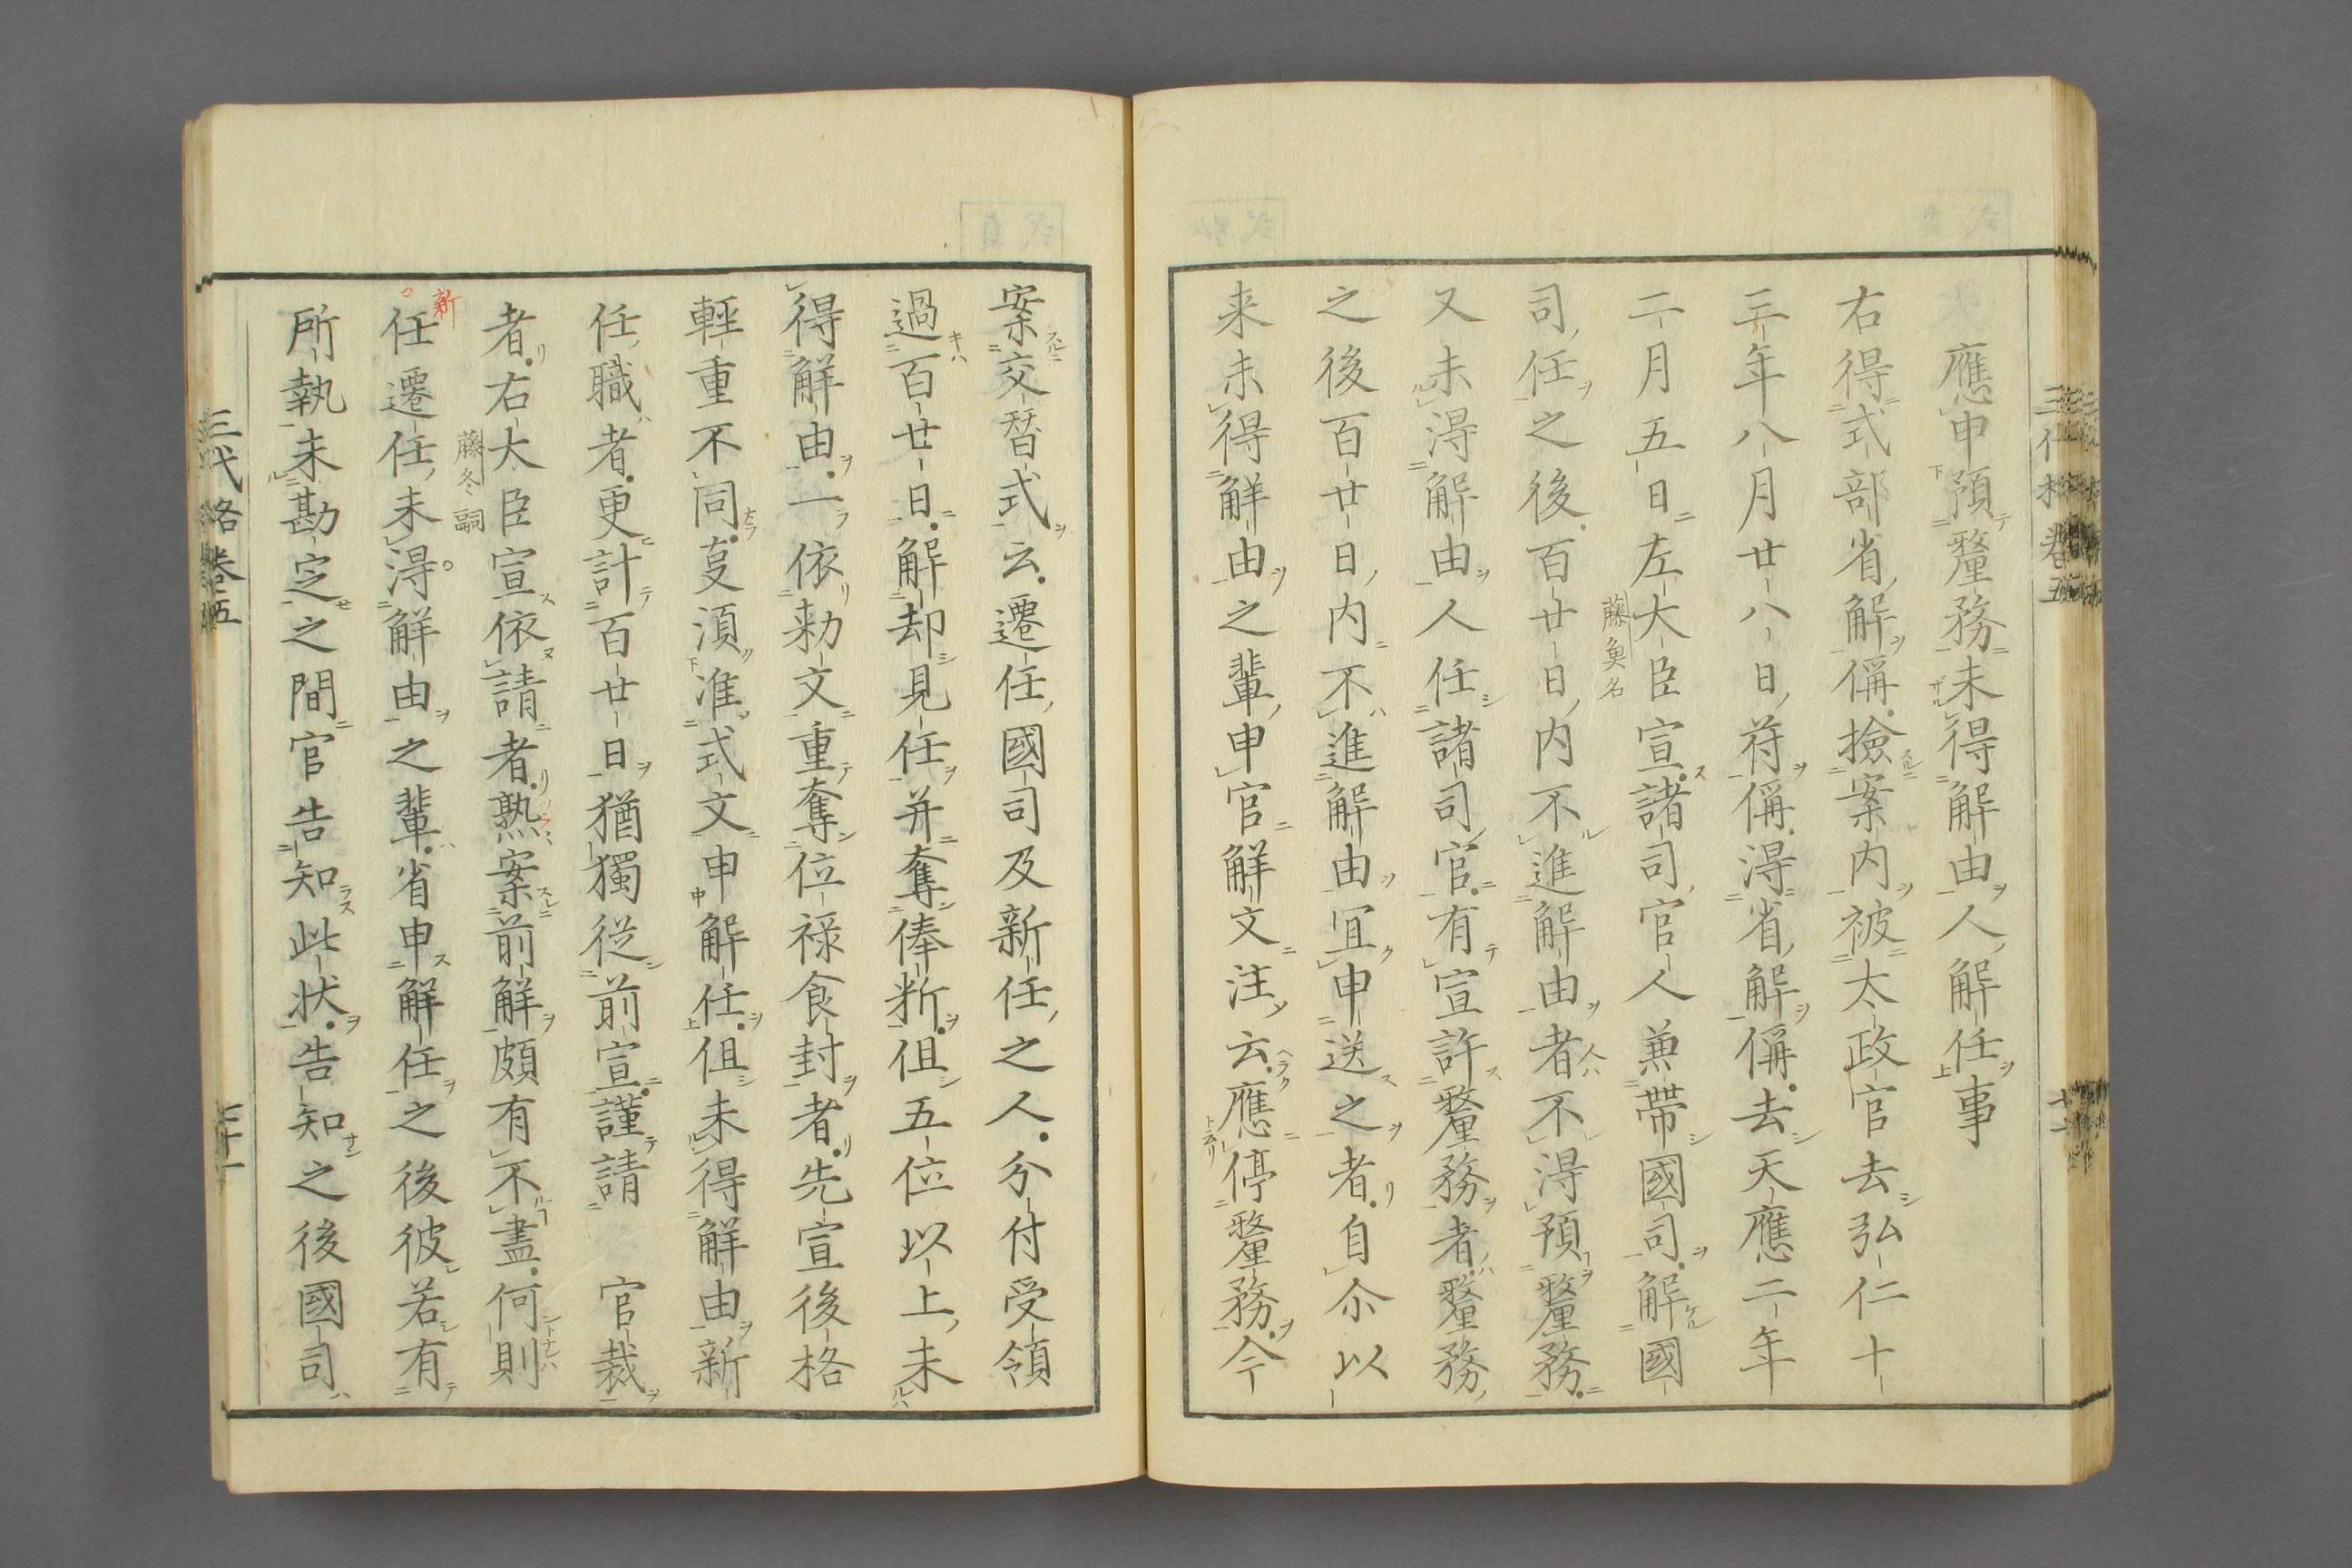 應申預釐務未得解由人解任事
右得式部省解偁撿案内被太政官去弘仁十
三年八月廿八日符偁得省解偁去天應二年
二月五日左大臣宣諸司官人兼帶國司解國
藤魚名
司任之後百廿日内不進解由者不得預釐務
又未得解由人任諸司官有宣許釐務者釐務
之後百廿日内不進解由冝申送之者自尒以
来未得解由之輩申官解文注云應停釐務今
案交替式云遷任國司及新任之人分付受領
過百廿日解却見任并奪俸断但五位以上未
得解由一依勅文重奪位禄食封者先宣後格
輕重不同㕝湏准式文申解任但未得解由新
任職者更計百廿日猶獨從前宣謹請　官裁
者右大臣宣依請者熟案前解頗有不盡何則
藤冬嗣
新
任遷任未得解由之輩省申解任之後彼若有
所執未勘定之間官告知此状告知之後國司
三代格卷五
三代格卷五